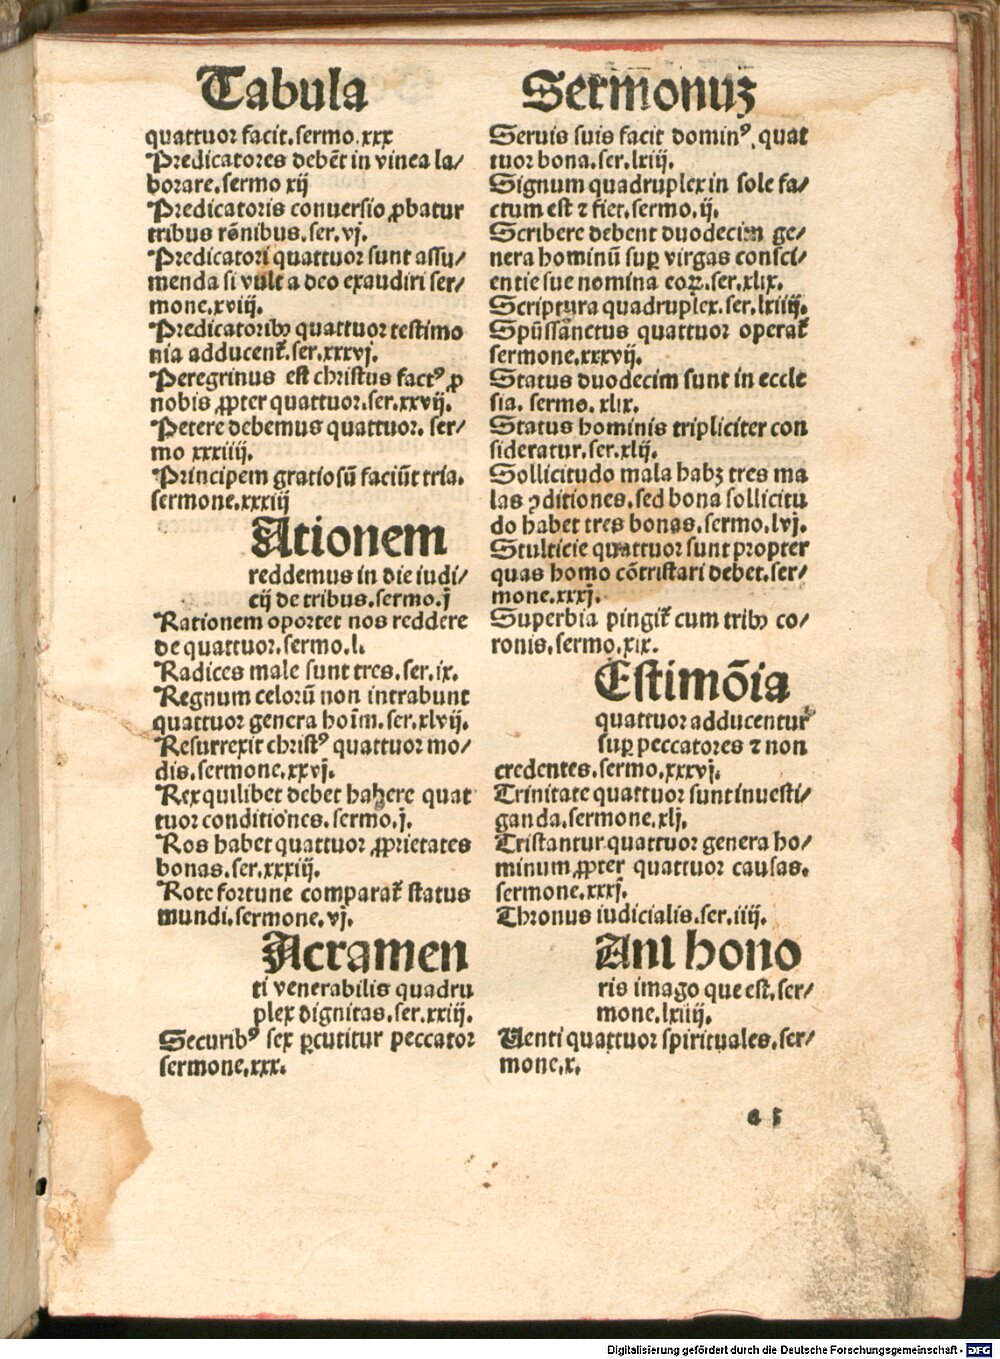 Tabula
quattuor facit.sermo.xxx
Predicatores debēt in vinea la/
borare.sermo xij
Predicatoris conuersio ꝓbatur
tribus rōnibus.ser.vj.
Predicatori quattuor sunt assu/
menda si vult a deo exaudiri ser/
mone.xviij.
Predicatoribꝫ quattuor testimo
nia adducent̄.ser.xxxvj.
Peregrinus est christus factꝰ ꝓ
nobis ꝓpter quattuor.ser.xxvij.
Petere debemus quattuor. ser/
mo xxxiiij.
Principem gratiosū faciūt tria.
sermone.xxxiij
Ationem
reddemus in die iudi/
cij de tribus.sermo.j
Rationem oportet nos reddere
de quattuor.sermo.l.
Radices male sunt tres.ser.ix.
Regnum celorū non intrabunt
quattuor genera hoīm.ser.xlvij.
Resurrexit christꝰ quattuor mo/
dis.sermone.xxvj.
Rex quilibet debet habere quat
tuor conditiones.sermo.j.
Ros habet quattuor ꝓprietates
bonas.ser.xxxiij.
Rote fortune comparat̄ status
mundi.sermone.vj.
Acramen
ti venerabilis quadru
plex dignitas.ser.xxiij.
Securibꝰ sex ꝑcutitur peccator
sermone.xxx.
Sermonuꝫ
Seruis suis facit dominꝰ.quat
tuor bona.ser.lxiij.
Signum quadruplex in sole fa/
ctum est ⁊ fiet.sermo.ij.
Scribere debent duodecim ge/
nera hominū suꝑ virgas consci/
entie sue nomina eoꝝ.ser.xlix.
Scriptura quadruplex.ser.lxiiij.
Spūssānctus quattuor operat̄
sermone.xxxvij.
Status duodecim sunt in eccle
sia. sermo.xlix.
Status hominis tripliciter con
sideratur.ser.xlij.
Sollicitudo mala habꝫ tres ma
las ꝯditiones.sed bona sollicitu
do habet tres bonas.sermo.lvj.
Stulticie quattuor sunt propter
quas homo cōtristari debet.ser/
mone.xxxj.
Superbia pingit̄ cum tribꝫ co/
ronis.sermo.xix.
Estimōia
quattuor adducentur
suꝑ peccatores ⁊ non
credentes.sermo.xxxvj.
Trinitate quattuor sunt inuesti/
ganda.sermone.xlj.
Tristantur quattuor genera ho/
minum ꝓpter quattuor causas.
sermone.xxxj.
Thronus iudicialis.ser.iiij.
Ani hono
ris imago que est.ser/
mone.lxiiij.
Uenti quattuor spirituales.ser/
mone.x.
a 5
Digitalisierung gefördert durch die Deutsche Forschungsgemeinschaft - DFG